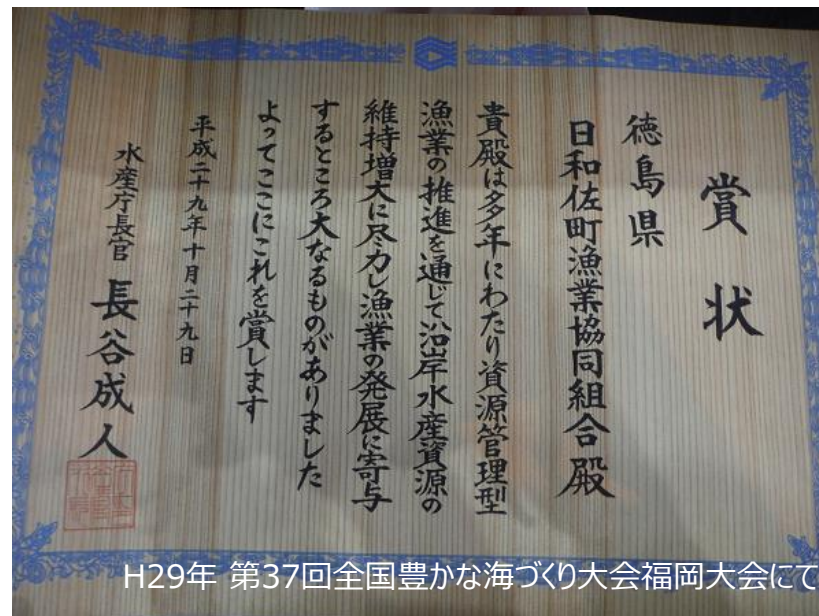 賞状
徳島県
日和佐町漁業協同組合殿
貴殿は多年にわたり資源管理型
漁業の推進を通じて沿岸水産資源の
維持増大に尽力し漁業の発展に寄与
するところ大なるものがありました
よってここにこれを賞します
平成二十九年十月二十九日
水産庁長官 長谷成人
H29年 第37回全国豊かな海づくり大会福岡大会にて